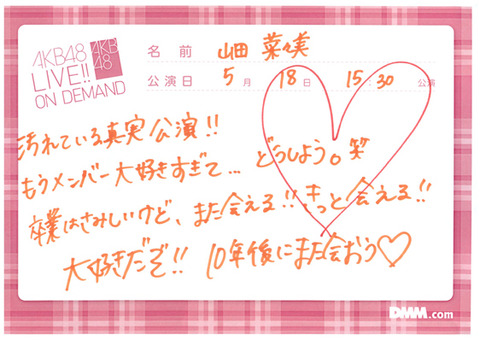 AKB48
LIVE!!
ON DEMAND
AKB
48
名 前 山田 菜々美
公演日 5 月 18 日 15:30 公演
汚れている真実公演!!
もうメンバー大好きすぎて… どうしよう。笑
卒業はさみしいけど、また会える!!きっと会える!!
大好きだぞ!! 10年後にまた会おう♡
DMM.com